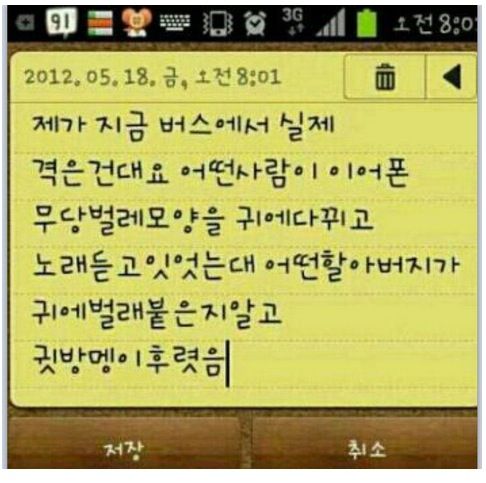 91 3G 오전 8:0
2012. 05. 18. 금, 오전 8:01
제가 지금 버스에서 실제
격은건대요 어떤사람이 이어폰
무당벌레모양을 귀에다뀌고
노래듣고잇엇는대 어떤할아버지가
귀에벌래붙은지알고
귓방멩이후렷음
저장 취소